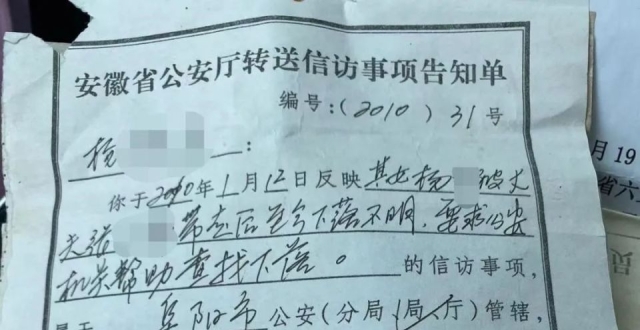 安徽省公安厅转送信访事项告知单
编号:(2010)31号
杨 :
你于2010年1月12日反映其女杨 被丈
夫张 带走后至今下落不明,要求公安
机关帮助查找下落。的信访事项,
属于 阜阳市 公安(分局、局、厅)管辖,
月19
省六